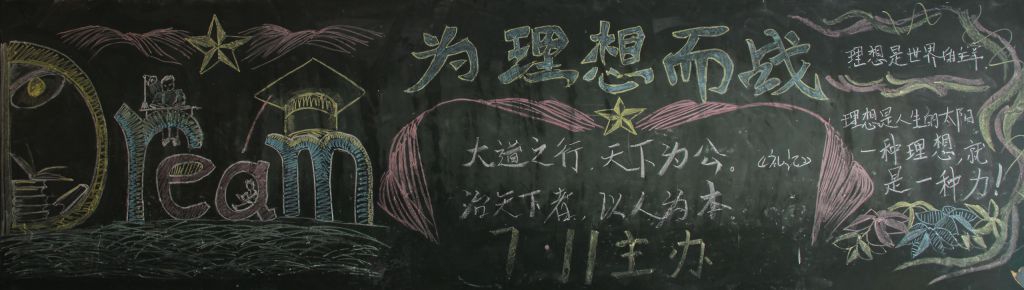 Dream
为理想而战
大道之行，天下为公。《礼记》
治天下者，以人为本。
7·11主办
理想是世界的主宰
理想是人生的太阳
一种理想，就
是一种力！